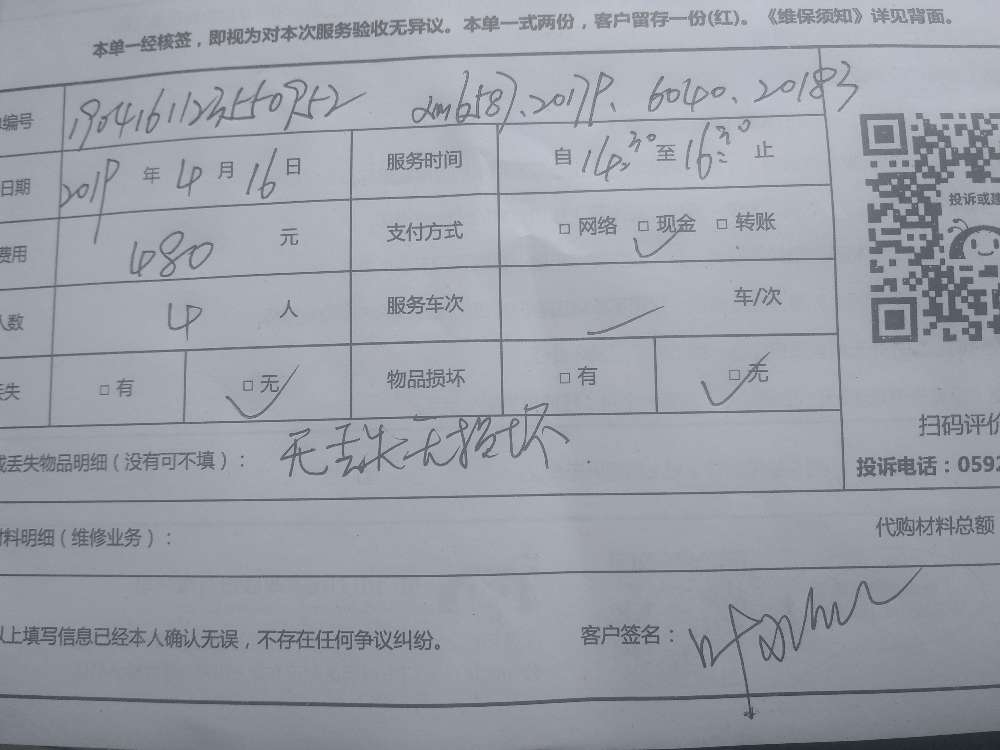 本单一经核签，即视为对本次服务验收无异议。本单一式两份，客户留存一份(红)。《维保须知》详见背面。
编号
日期 2019 年 4 月 16 日 服务时间 自 14:30 至 16:30 止
费用 480 元 支付方式 □ 网络 □ 现金 □ 转账
人数 4 人 服务车次 车/次
失 □ 有 □ 无 物品损坏 □ 有 □ 无
投诉或建
扫码评价
投诉电话：0592
或丢失物品明细（没有可不填）： 无丢失无损坏
材料明细（维修业务）： 代购材料总额
以上填写信息已经本人确认无误，不存在任何争议纠纷。 客户签名：